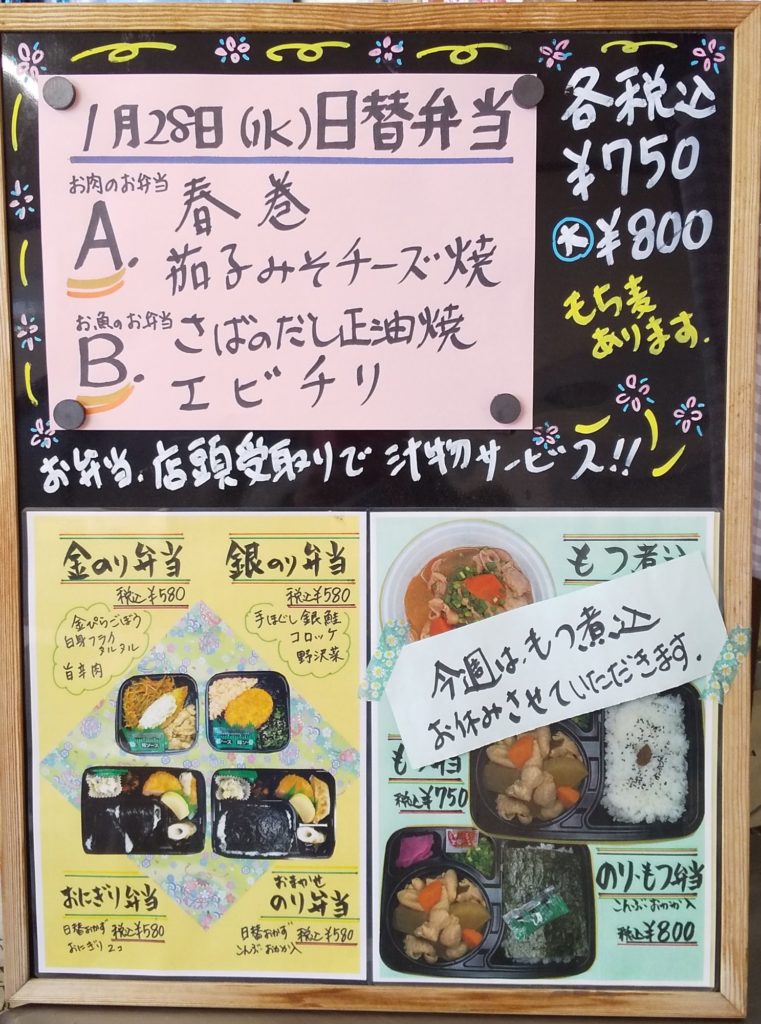 1月28日(水)日替弁当
お肉のお弁当
A. 春巻
茄子みそチーズ焼
お魚のお弁当
B. さばのだし正油焼
エビチリ
各税込
¥750
大 ¥800
もち麦
あります.
お弁当.店頭受取りで 汁物サービス!!
金のり弁当
税込¥580
金ぴらごぼう
白身フライ
タルタル
旨辛肉
銀のり弁当
税込¥580
手ほぐし銀鮭
コロッケ
野沢菜
おにぎり弁当
日替おかず 税込¥580
おにぎり2コ
おまかせ
のり弁当
日替おかず 税込¥580
こんぶ・おかか入
もつ煮込
今週は、もつ煮込
お休みさせていただきます.
税込¥750
のり・もつ弁当
こんぶ・おかか入
税込¥800